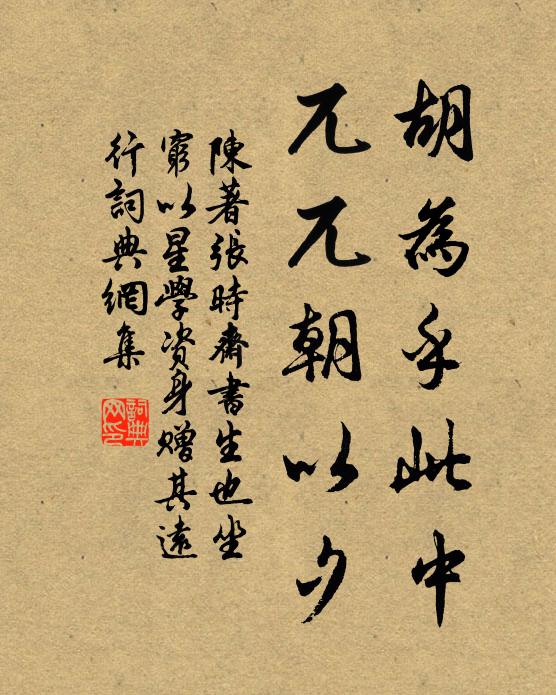 胡為乎此中
兀兀朝以夕
陳著張時齋書生也坐
窮以星學資身贈其遠
行詞典網集
詞典網印